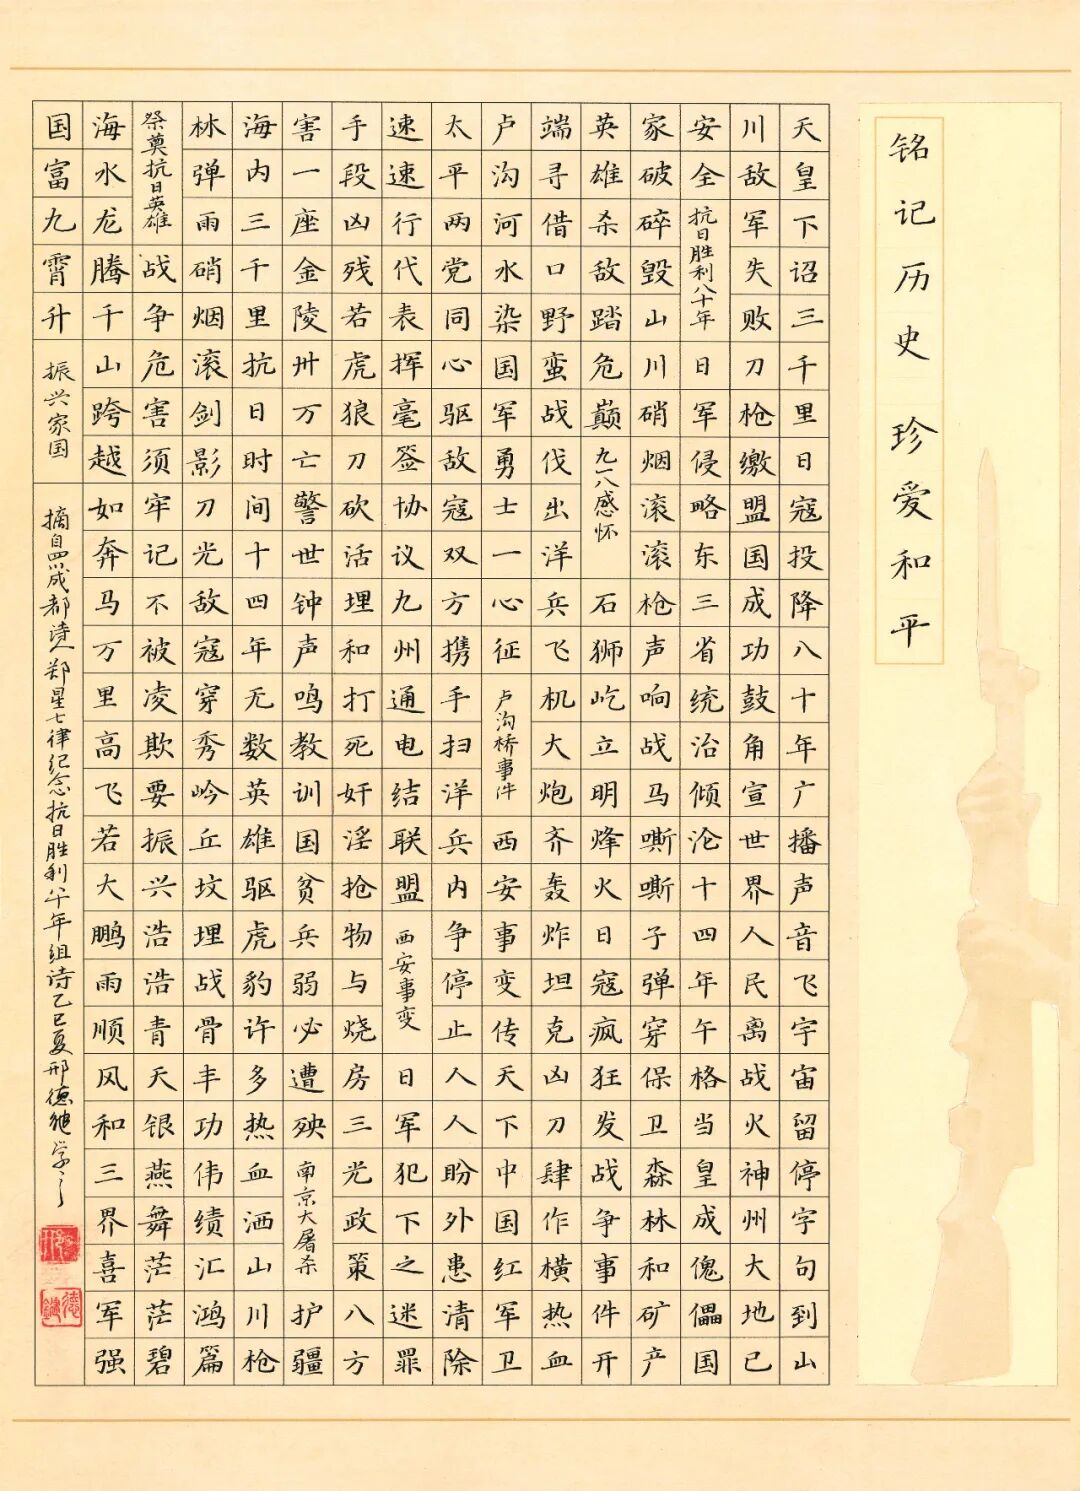 铭记历史 珍爱和平
天皇下诏三千里日寇投降八十年广播声音飞宇宙留停字句到山
川敌军失败刀枪缴盟国成功鼓角宣世界人民离战火神州大地已
安全 抗日胜利八十年 日军侵略东三省统治倾沦十四年午格当皇成傀儡国
家破碎毁山川硝烟滚滚枪声响战马嘶嘶子弹穿保卫森林和矿产
英雄杀敌踏危巅 九一八感怀 石狮屹立明烽火日寇疯狂发战争事件开
端寻借口野蛮战伐出洋兵飞机大炮齐轰炸坦克凶刀肆作横热血
卢沟河水染国军勇士一心征 卢沟桥事件 西安事变传天下中国红军卫
太平两党同心驱敌寇双方携手扫洋兵内争停止人人盼外患清除
速速行代表挥毫签协议九州通电结联盟 西安事变 日军犯下之迷罪
手段凶残若虎狼刀砍活埋和打死奸淫抢物与烧房三光政策八方
害一座金陵卅万亡警世钟声鸣教训国贫兵弱必遭殃 南京大屠杀 护疆
海内三千里抗日时间十四年无数英雄驱虎豹许多热血洒山川枪
林弹雨硝烟滚剑影刀光敌寇穿秀岭丘坟埋战骨丰功伟绩汇鸿篇
祭奠抗日英雄 战争危害须牢记不被凌欺要振兴浩浩青天银燕舞茫茫碧
海水龙腾千山跨越如奔马万里高飞若大鹏雨顺风和三界喜军强
国富九霄升 振兴家国 摘自四川成都诗人郑星七律纪念抗日胜利八十年组诗乙巳夏邢德继学之